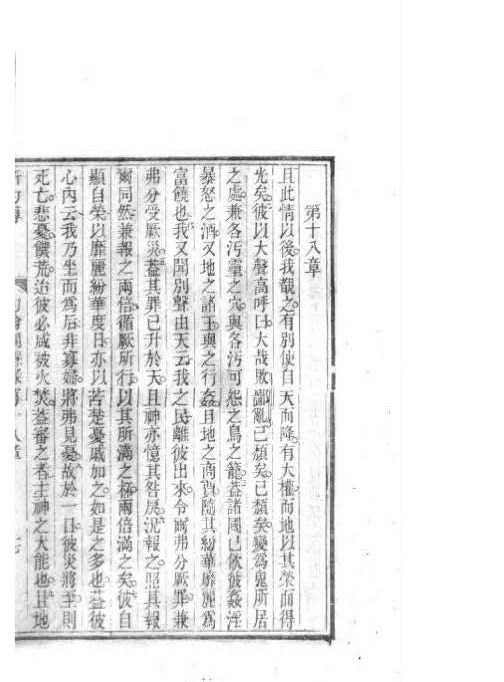 第十八章
且此情以後我覩之有別使自天而降有大權而地以其榮而得
光矣彼以大聲高呼曰大哉敗鄙亂已頹矣已頹矣變為鬼所居
之處兼各污靈之穴與各污可怨之鳥之籠葢諸國已飲彼姦淫
暴怒之酒又地之諸王與之行姦且地之商賈隨其紛華靡麗為
富饒也我又聞別聲由天云我之民離彼出來令爾弗分厥罪兼
弗分受厥災葢其罪已升於天且神亦憶其咎戾况報之照其報
爾同然兼報之兩倍循厥所行以其所滿之杯兩倍滿之矣彼自
顯自榮以靡麗紛華度日亦以苦楚憂戚加之如是之多也葢彼
心內云我乃坐而為后非寡婦將弗見憂故於一日彼災將至則
死亡悲憂饌荒迨彼必咸被火焚葢審之者主神之大能也且地